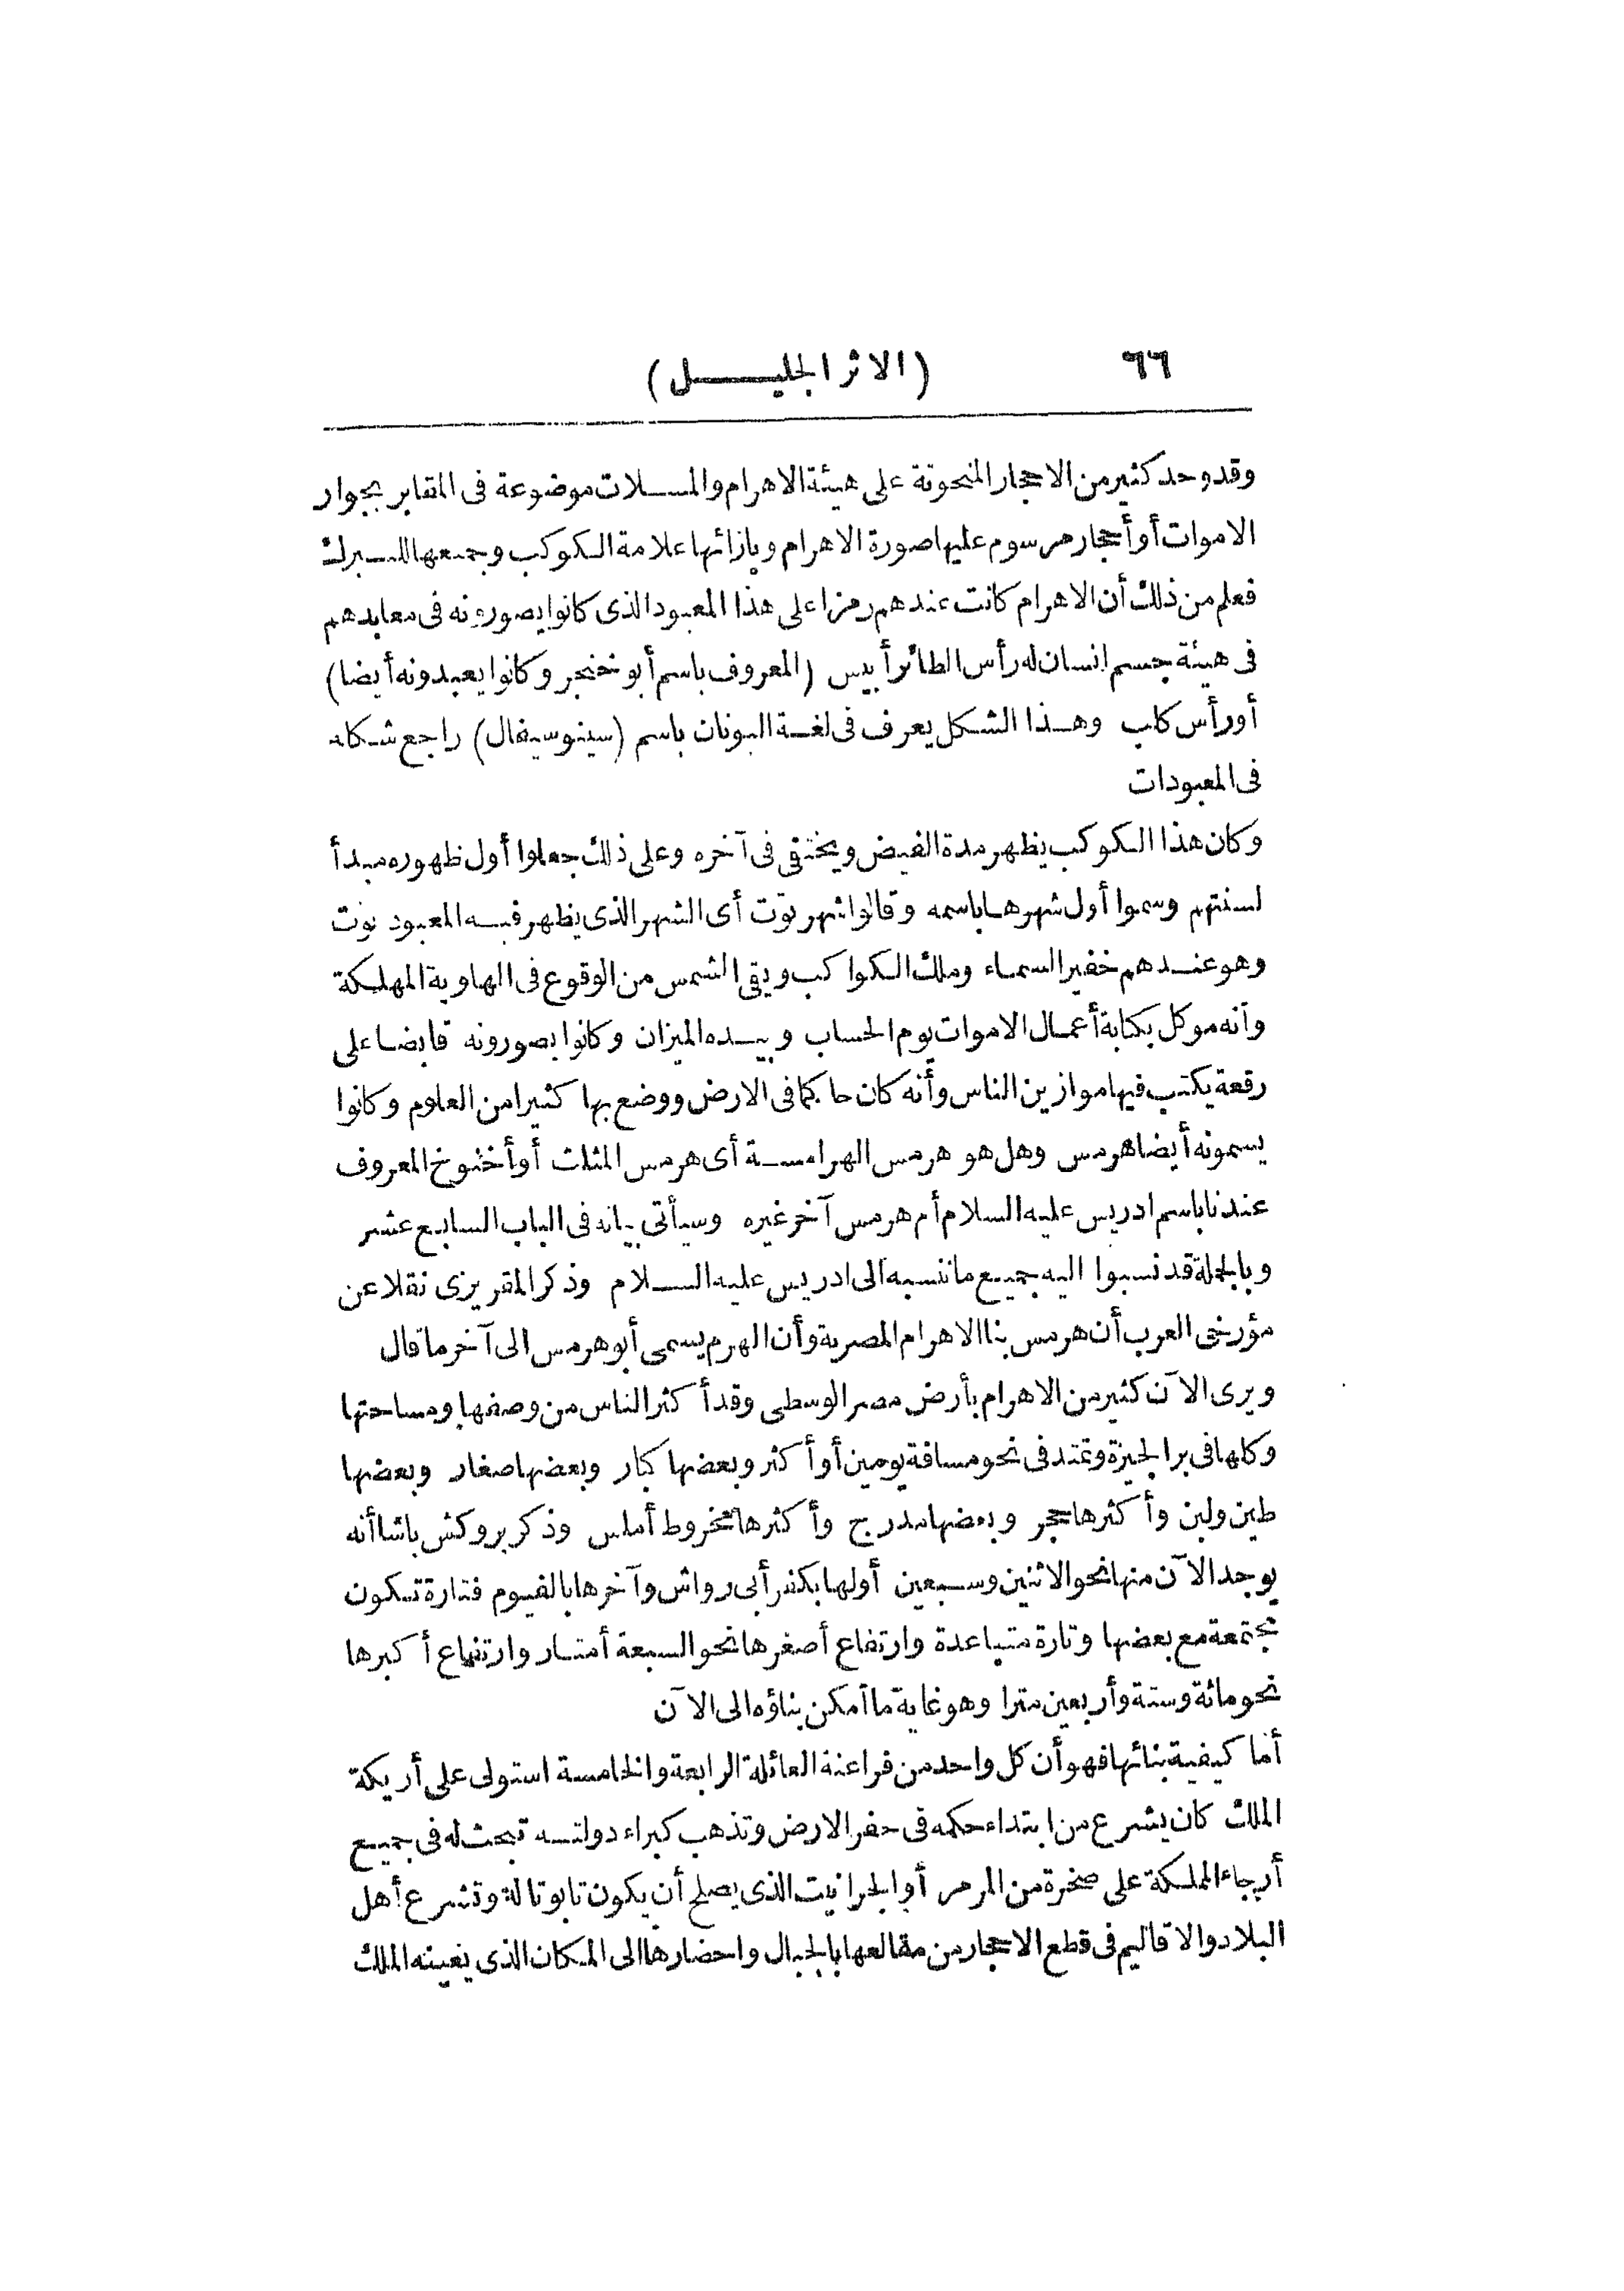 ٦٦ (الاثر الجليل)
وقد وجد كثير من الاحجار المنحوتة على هيئة الاهرام والمسلات موضوعة فى المقابر بجوار
الاموات أو أحجار مرسوم عليها صورة الاهرام وبازائها علامة الكوكب وجميعها للتبرك
فعلم من ذلك أن الاهرام كانت عندهم رمزا على هذا المعبود الذى كانوا يصورونه فى معابدهم
فى هيئة جسم انسان له رأس الطائر أبيس (المعروف باسم أبو خنجر وكانوا يعبدونه أيضا)
أو رأس كلب وهذا الشكل يعرف فى لغة اليونان باسم (سينوسيفال) راجع شكله
فى المعبودات
وكان هذا الكوكب يظهر مدة الفيض ويختفى فى آخره وعلى ذلك جعلوا أول ظهوره مبدأ
لسنتهم وسموا أول شهرها باسمه وقالوا شهر توت أى الشهر الذى يظهر فيه المعبود توت
وهو عندهم خفير السماء وملك الكواكب ويقى الشمس من الوقوع فى الهاوية المهلكة
وانه موكل بكتابة أعمال الاموات يوم الحساب وبيده الميزان وكانوا يصورونه قابضا على
رقعة يكتب فيها موازين الناس وأنه كان حاكما فى الارض ووضع بها كثيرا من العلوم وكانوا
يسمونه أيضا هرمس وهل هو هرمس الهرامسة أى هرمس المثلث أو أخنوخ المعروف
عندنا باسم ادريس عليه السلام أم هرمس آخر غيره وسيأتى بيانه فى الباب السابع عشر
وبالجملة قد نسبوا اليه جميع ما ننسبه الى ادريس عليه السلام وذكر المقريزى نقلا عن
مؤرخى العرب أن هرمس بنا الاهرام المصرية وأن الهرم يسمى أبو هرمس الى آخر ما قال
ويرى الآن كثير من الاهرام بأرض مصر الوسطى وقد أكثر الناس من وصفها ومساحتها
وكلها فى بر الجيزة وتمتد فى نحو مسافة يومين أو أكثر وبعضها كبار وبعضها صغار وبعضها
طين ولبن وأكثرها حجر وبعضها مدرج وأكثرها مخروط أملس وذكر بروكش باشا أنه
يوجد الآن منها نحو الاثنين وسبعين أولها بكفر أبى رواش وآخرها بالفيوم فتارة تكون
مجتمعة مع بعضها وتارة متباعدة وارتفاع أصغرها نحو السبعة أمتار وارتفاع أكبرها
نحو مائة وستة وأربعين مترا وهو غاية ما أمكن بناؤه الى الآن
أما كيفية بنائها فهو أن كل واحد من فراعنة العائلة الرابعة والخامسة استولى على أريكة
الملك كان يشرع من ابتداء حكمه فى حفر الارض وتذهب كبراء دولته تبحث له فى جميع
أرجاء المملكة على صخرة من المرمر أو الجرانيت الذى يصلح أن يكون تابوتا له وتشرع أهل
البلاد والاقاليم فى قطع الاحجار من مقالعها بالجبال واحضارها الى المكان الذى يعينه الملك